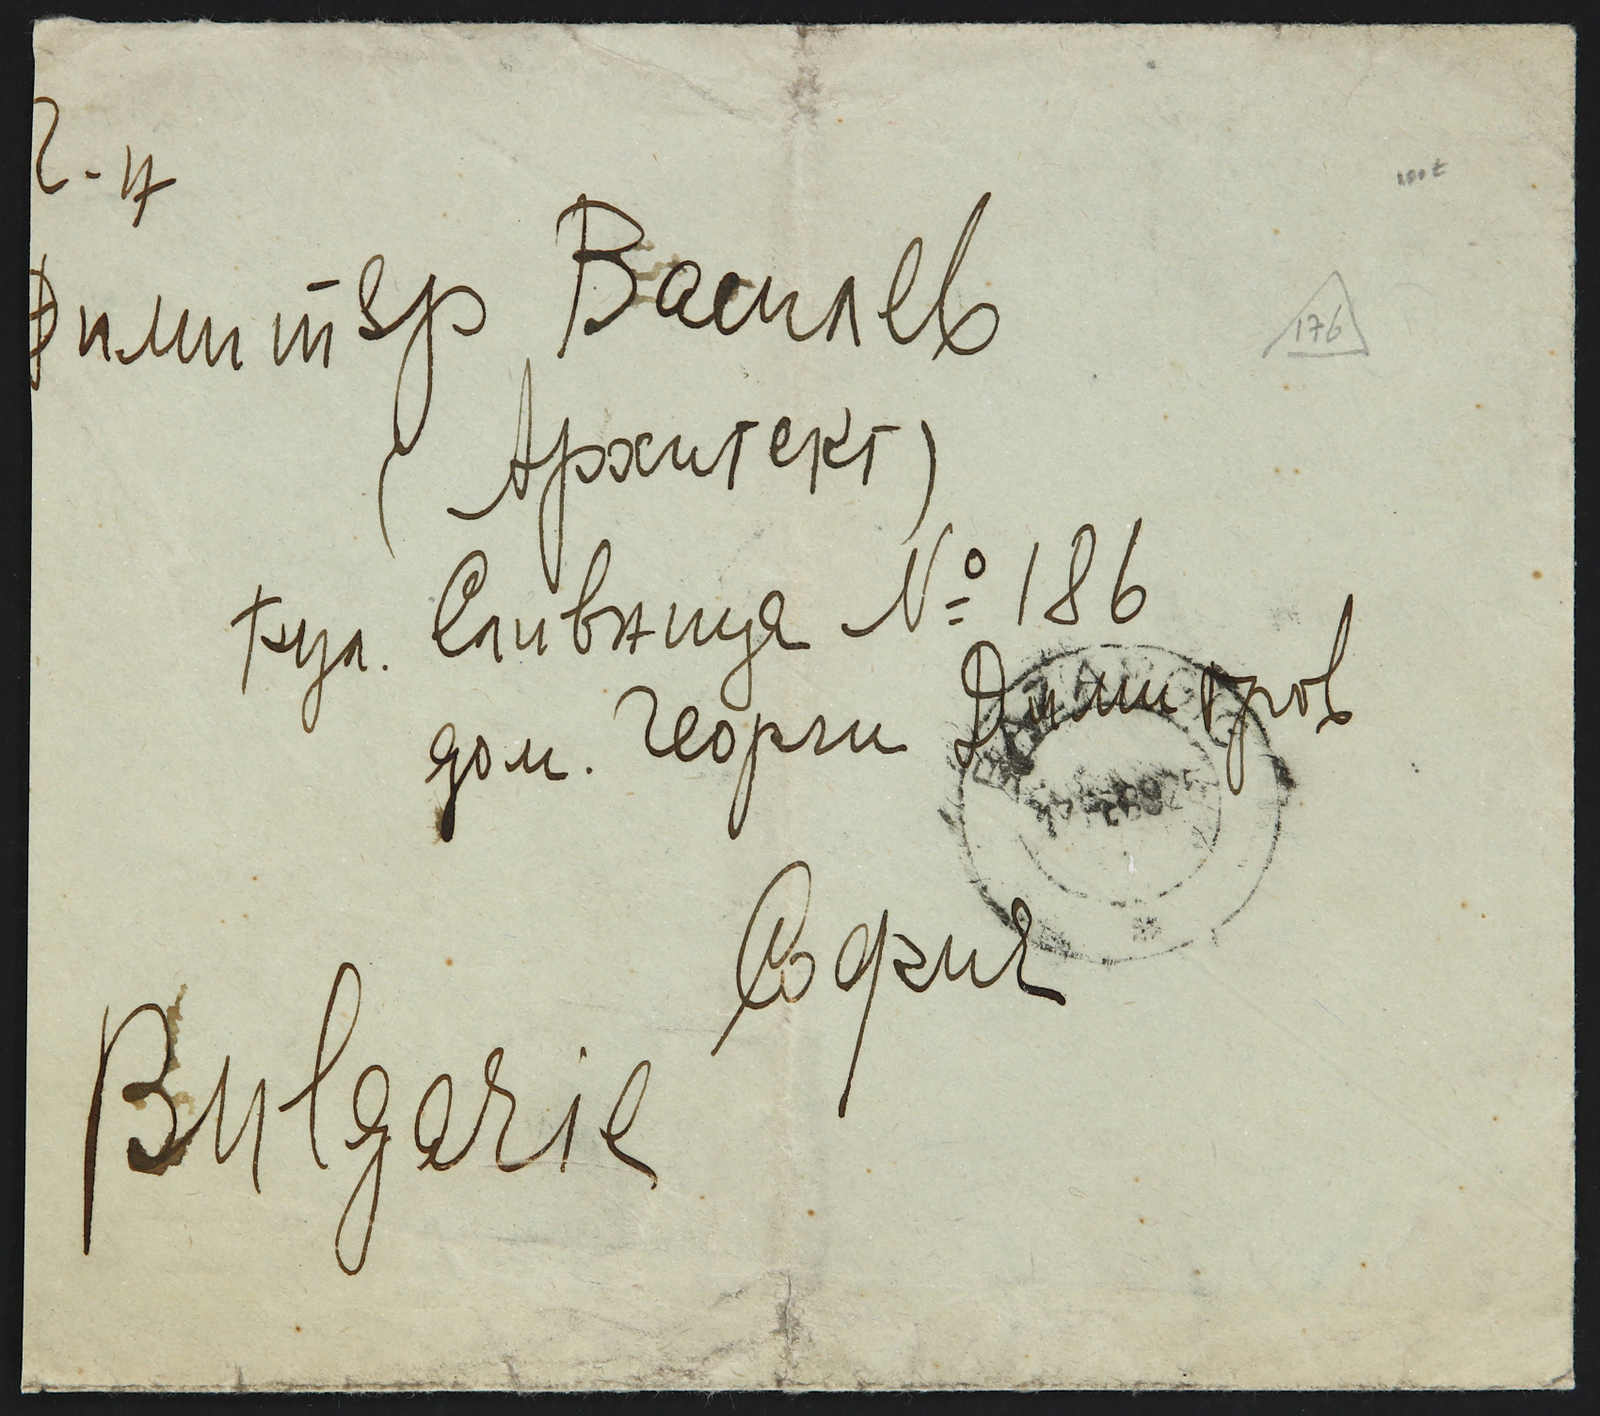 Г-н
Димитър Василев
(Архитект)
бул. Сливница № 186
дом. Георги Димитров
София
Bulgarie
176